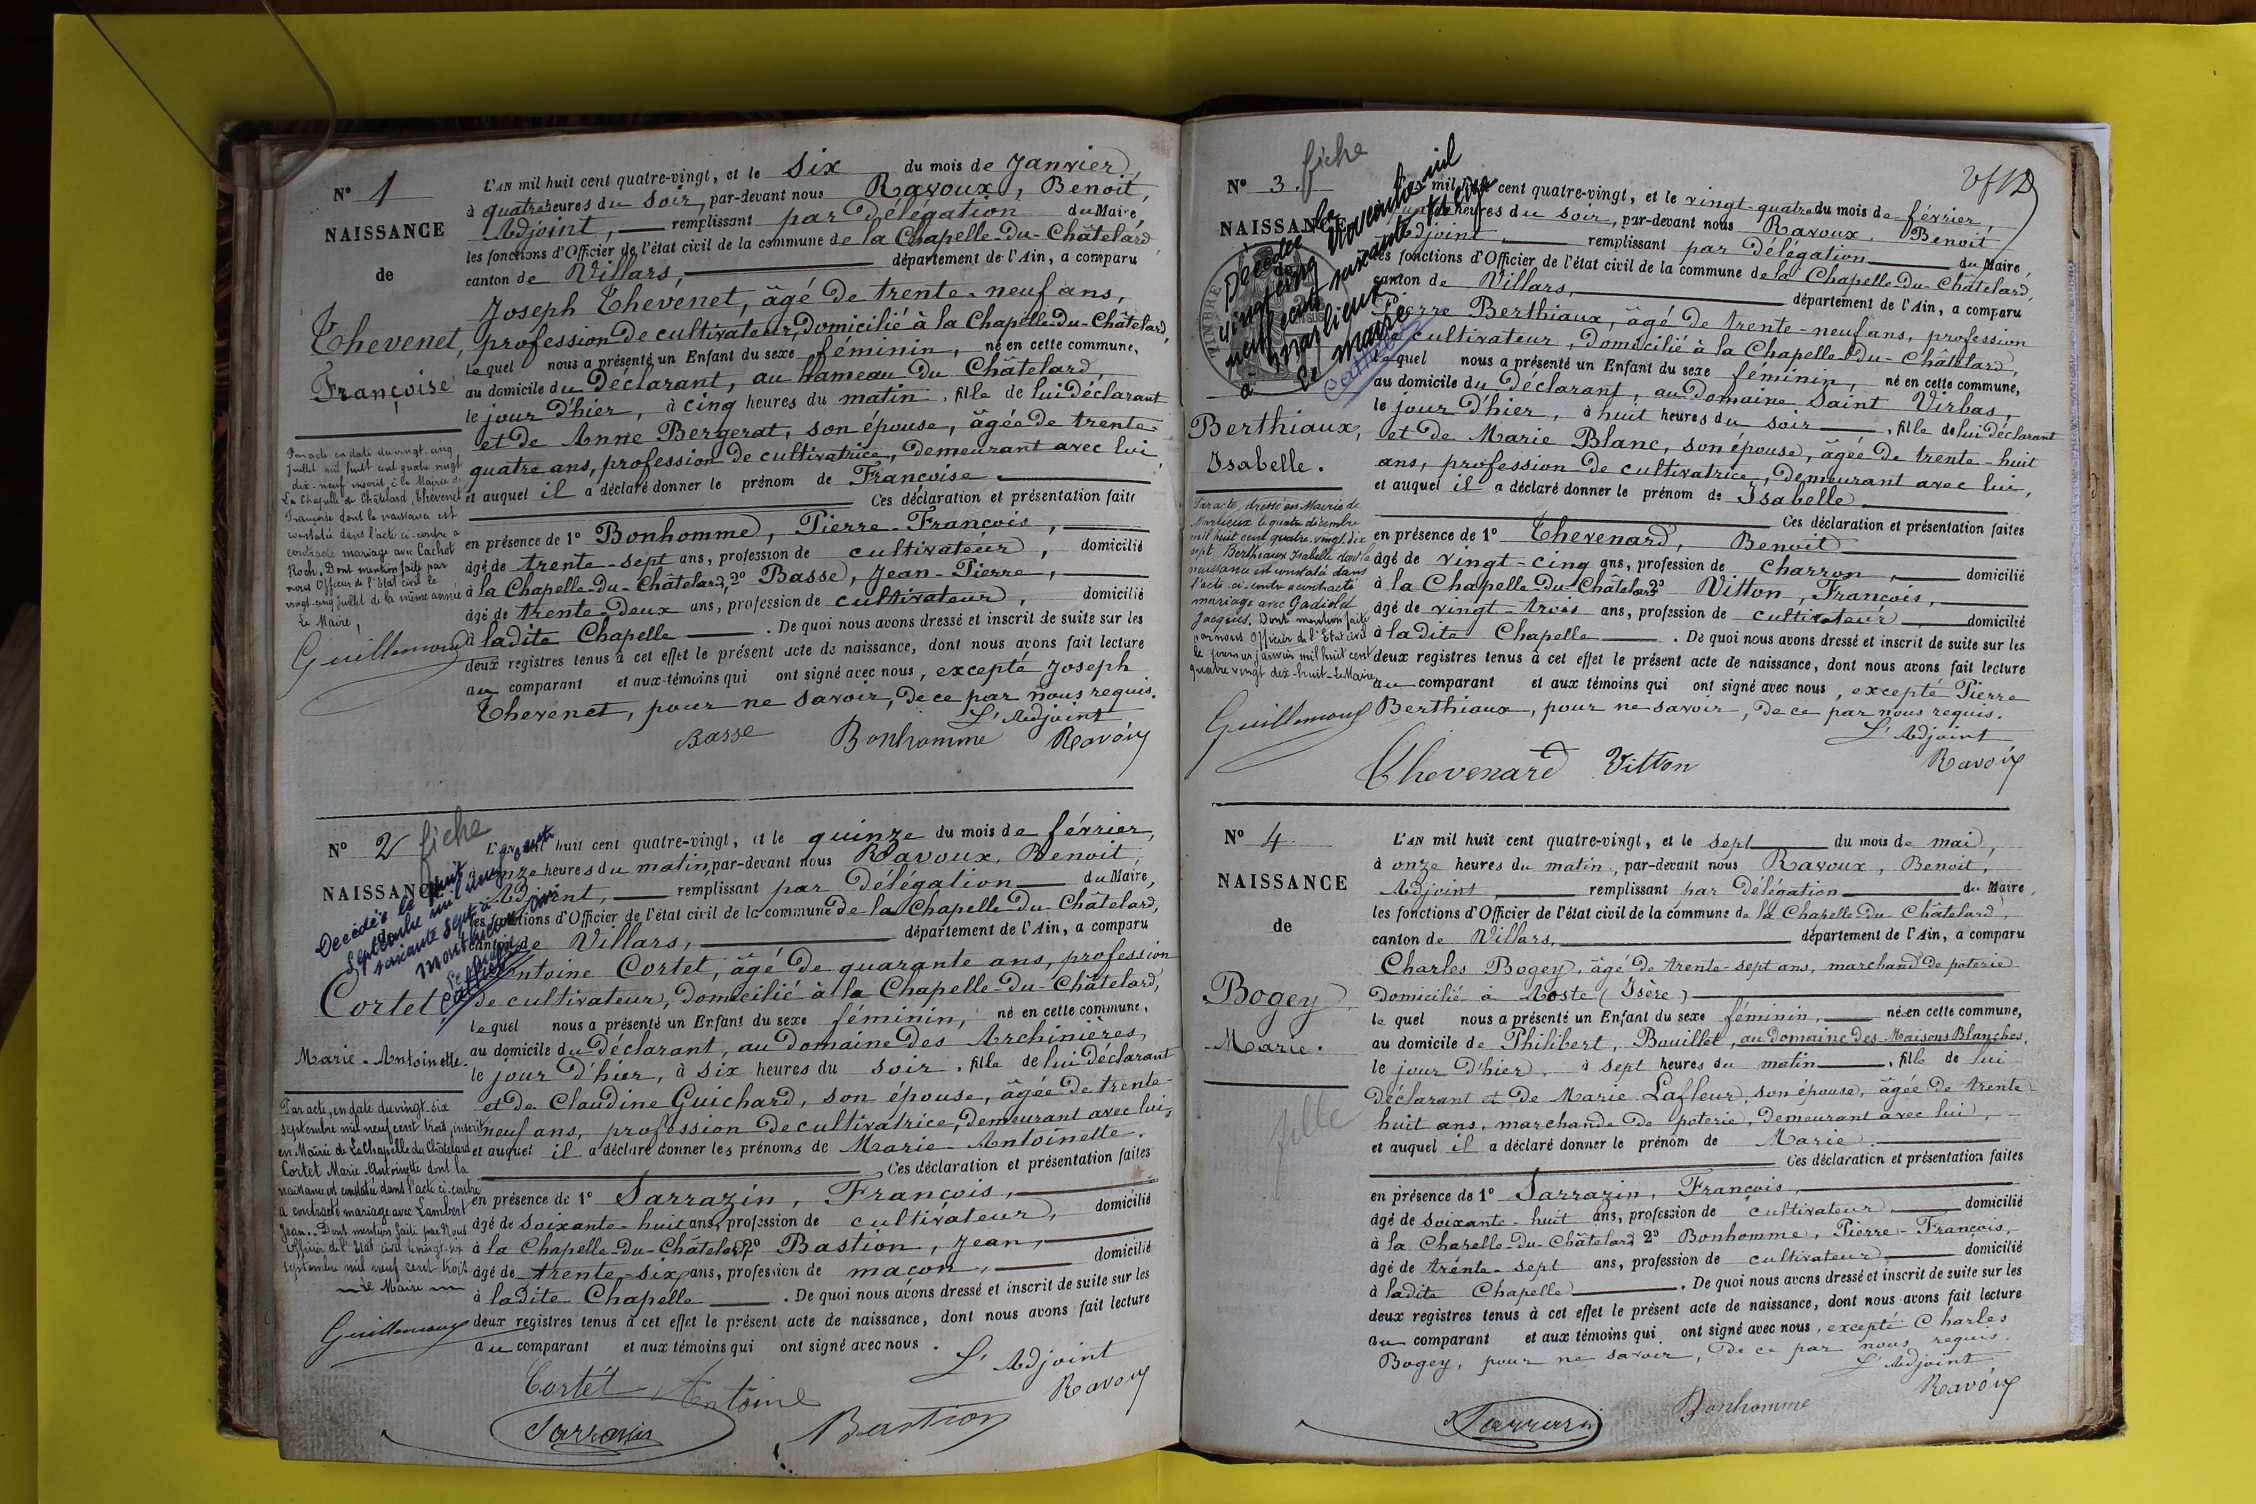 N° 1
L'AN mil huit cent quatre-vingt, et le six du mois de Janvier,
à quatre heures du soir, par-devant nous Ravoux, Benoit,
Adjoint, remplissant par Délégation du Maire,
NAISSANCE
les fonctions d'Officier de l'état civil de la commune de la Chapelle-Du-Châtelard
de
canton de Villars, département de l'Ain, a comparu
Joseph Thevenet, âgé de trente-neuf ans,
Thevenet,
profession de cultivateur, domicilié à la Chapelle-Du-Châtelard,
le quel nous a présenté un Enfant du sexe féminin, né en cette commune,
Françoise
au domicile du Déclarant, au hameau Du Châtelard,
le jour D'hier, à cinq heures du matin, fille de lui déclarant
et de Anne Bergerat, son épouse, âgée de trente-
quatre ans, profession de cultivatrice, demeurant avec lui,
et auquel il a déclaré donner le prénom de Françoise
Ces déclaration et présentation faites
en présence de 1° Bonhomme, Pierre-François,
âgé de trente-sept ans, profession de cultivateur, domicilié
à la Chapelle-Du-Châtelard, 2° Basse, Jean-Pierre,
âgé de trente-Deux ans, profession de cultivateur, domicilié
à ladite Chapelle. De quoi nous avons dressé et inscrit de suite sur les
deux registres tenus à cet effet le présent acte de naissance, dont nous avons fait lecture
au comparant et aux témoins qui ont signé avec nous, excepté Joseph
Thevenet, pour ne savoir, De ce par nous requis.
L'Adjoint
Basse Bonhomme Ravoux
Par acte en date du vingt-cinq
juillet mil huit cent quatre vingt
dix-neuf inscrit à la Mairie de
La Chapelle du Châtelard, Thévenet
Françoise dont la naissance est
constatée dans l'acte ci-contre a
contracté mariage avec Cachot
Roch. Dont mention faite par
nous Officier de l'Etat civil le
vingt-cinq juillet de la même année
Le Maire,
Guillemaud
N° 2 fiche
L'AN mil huit cent quatre-vingt, et le quinze du mois de février,
à onze heures du matin, par-devant nous Ravoux, Benoit,
Adjoint, remplissant par Délégation du Maire,
NAISSANCE
les fonctions d'Officier de l'état civil de la commune de la Chapelle Du Châtelard,
canton de Villars, département de l'Ain, a comparu
Décédée le huit
Septembre mil neuf cent
soixante sept à
Le Maire
Antoine Cortet, âgé De quarante ans, profession
Cortet,
de cultivateur, domicilié à la Chapelle-Du-Châtelard,
le quel nous a présenté un Enfant du sexe féminin, né en cette commune,
Marie-Antoinette
au domicile du Déclarant, au domaine Des Archinières,
le jour D'hier, à six heures du soir, fille de lui déclarant
et de Claudine Guichard, son épouse, âgée De trente-
neuf ans, profession De cultivatrice, Demeurant avec lui,
et auquel il a déclaré donner les prénoms de Marie-Antoinette.
Ces déclaration et présentation faites
en présence de 1° Sarrazin, François,
âgé de soixante-huit ans, profession de cultivateur, domicilié
à la Chapelle-Du-Châtelard, 2° Bastion, Jean,
âgé de trente-six ans, profession de maçon, domicilié
à ladite Chapelle. De quoi nous avons dressé et inscrit de suite sur les
deux registres tenus à cet effet le présent acte de naissance, dont nous avons fait lecture
au comparant et aux témoins qui ont signé avec nous.
L'Adjoint
Cortét Antoine Ravoux
Sarrasin Bastion
Par acte, en date du vingt-six
septembre mil neuf cent trois, inscrit
en Mairie de La Chapelle du Châtelard
Cortet Marie-Antoinette dont la
naissance est constatée dans l'acte ci-contre
a contracté mariage avec Lambert
Jean.- Dont mention faite par Nous
Officier de l'Etat civil le vingt-six
septembre mil neuf cent trois
Le Maire
Guillemaud
N° 3. fiche
L'AN mil huit cent quatre-vingt, et le vingt-quatre du mois de février,
heures du soir, par-devant nous Ravoux, Benoit
Adjoint remplissant par Délégation du Maire,
NAISSANCE
les fonctions d'Officier de l'état civil de la commune de la Chapelle-Du-Châtelard,
canton de Villars, département de l'Ain, a comparu
TIMBRE
Décédée le
vingt cinq
neuf cent soixante
à Marlieux
Le Maire
Pierre Berthiaux, âgé De trente-neuf ans, profession
de cultivateur, Domicilié à la Chapelle-Du-Châtelard,
le quel nous a présenté un Enfant du sexe féminin, né en cette commune,
au domicile du Déclarant, au domaine Saint Virbas,
le jour D'hier, à huit heures du soir, fille de lui déclarant
Berthiaux,
et de Marie Blanc, son épouse, âgée De trente-huit
Isabelle.
ans, profession De cultivatrice, Demeurant avec lui,
et auquel il a déclaré donner le prénom de Isabelle
Ces déclaration et présentation faites
en présence de 1° Thevenard, Benoit
âgé de vingt-cinq ans, profession de charron, domicilié
à la Chapelle-Du-Châtelard, 2° Vitton, François,
âgé de vingt-trois ans, profession de cultivateur, domicilié
à ladite Chapelle. De quoi nous avons dressé et inscrit de suite sur les
deux registres tenus à cet effet le présent acte de naissance, dont nous avons fait lecture
au comparant et aux témoins qui ont signé avec nous, excepté Pierre
Berthiaux, pour ne savoir, De ce par nous requis.
L'Adjoint
Thevenard Vitton Ravoux
Par acte dressé en Mairie de
Marlieux le quatre décembre
mil huit cent quatre-vingt dix
sept Berthiaux Isabelle dont la
naissance est constatée dans
l'acte ci-contre a contracté
mariage avec Gadiolet
Jacques. Dont mention faite
par nous Officier de l'Etat civil
le premier janvier mil huit cent
quatre vingt dix-huit- Le Maire
Guillemaud
N° 4
L'AN mil huit cent quatre-vingt, et le sept du mois de mai,
à onze heures du matin, par-devant nous Ravoux, Benoit,
Adjoint, remplissant par Délégation du Maire,
NAISSANCE
les fonctions d'Officier de l'état civil de la commune de la Chapelle-Du-Châtelard,
de
canton de Villars, département de l'Ain, a comparu
Charles Bogey, âgé De trente-sept ans, marchand De poterie
Bogey
Domicilié à Aoste (Isère)
le quel nous a présenté un Enfant du sexe féminin, né en cette commune,
Marie.
au domicile de Philibert, Bouillet, au domaine des Maisons Blanches,
le jour D'hier, à sept heures du matin, fille de lui
déclarant et De Marie Lafleur, son épouse, âgée De trente
fille
huit ans, marchande De poterie, Demeurant avec lui,
et auquel il a déclaré donner le prénom de Marie.
Ces déclaration et présentation faites
en présence de 1° Sarrazin, François,
âgé de soixante-huit ans, profession de cultivateur, domicilié
à la Chapelle-Du-Châtelard, 2° Bonhomme, Pierre-François,
âgé de trente-sept ans, profession de cultivateur, domicilié
à ladite Chapelle. De quoi nous avons dressé et inscrit de suite sur les
deux registres tenus à cet effet le présent acte de naissance, dont nous avons fait lecture
au comparant et aux témoins qui ont signé avec nous, excepté Charles
Bogey, pour ne savoir, De ce par nous requis.
L'Adjoint,
Bonhomme Ravoux
Sarrasin